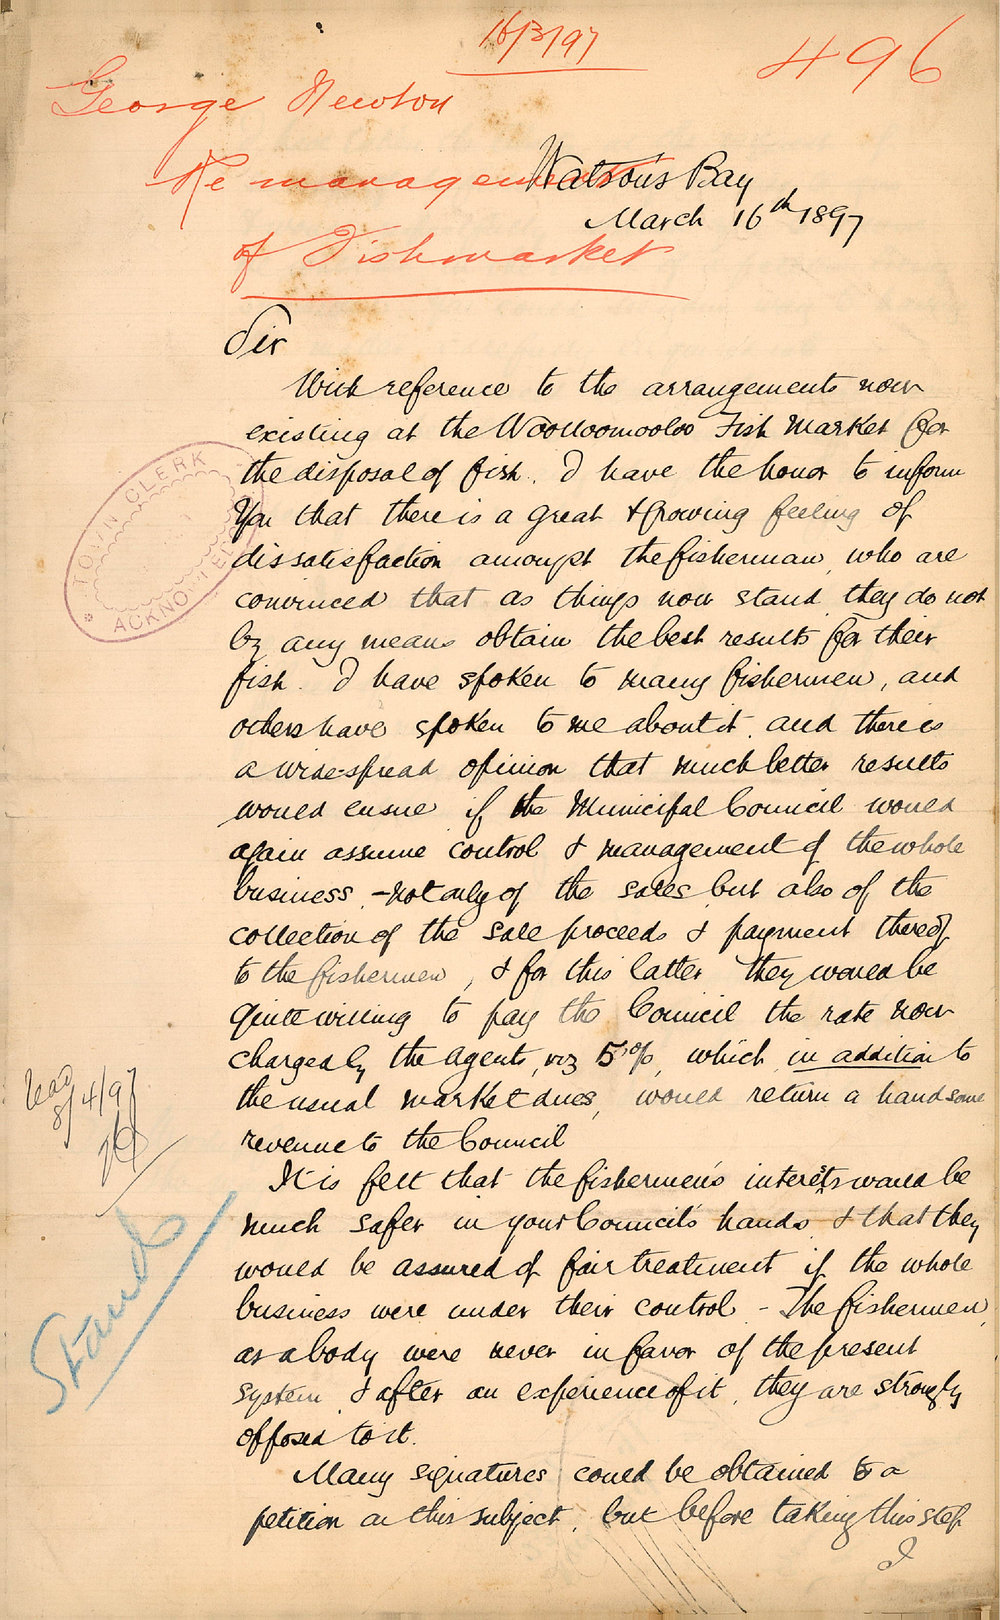 16/3/97
496
George Newton
Re management
of Fishmarket
Watson's Bay
March 16th 1897
Sir
With reference to the arrangements now
existing at the Woolloomooloo Fish Market for
the disposal of fish. I have the honor to inform
you that there is a great & growing feeling of
dissatisfaction amongst the fisherman, who are
convinced that as things now stand, they do not
by any means obtain the best results for their
fish. I have spoken to many fishermen, and
others have spoken to me about it, and there is
a wide-spread opinion that much better results
would ensue if the Municipal Council would
again assume control & management of the whole
business, - not only of the sales, but also of the
collection of the sale proceeds & payment thereof
to the fishermen, & for this latter they would be
quite willing to pay the Council the rate now
charged by the agents, viz 5%, which, in addition to
the usual market dues, would return a handsome
revenue to the Council
It is felt that the fishermen's interests would be
much safer in your Council's hands, & that they
would be assured of fair treatment if the whole
business were under their control - The fishermen,
as a body were never in favor of the present
system, & after an experience of it, they are strongly
opposed to it.
Many signatures could be obtained to a
petition on this subject, but before taking this step
I
* TOWN CLERK
8/4/97
Stands